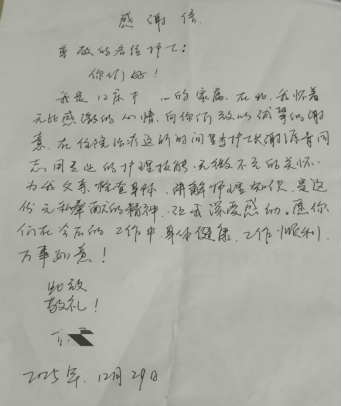 感谢信.
尊敬的各位护士:
你们好!
我是12床 的家属,在此,我怀着
无比感激的心情,向你们致以诚挚的谢
意,在住院治疗这所时间里 护士长谢 同
志用专业的护理技能,无微不至的关怀
为我父亲检查身体,讲解护理知识,是这
份无私奉献的精神,让我深受感动。愿你
们在今后的工作中,身体健康,工作顺利,
万事如意!
此致
敬礼!
2025年.12月29日